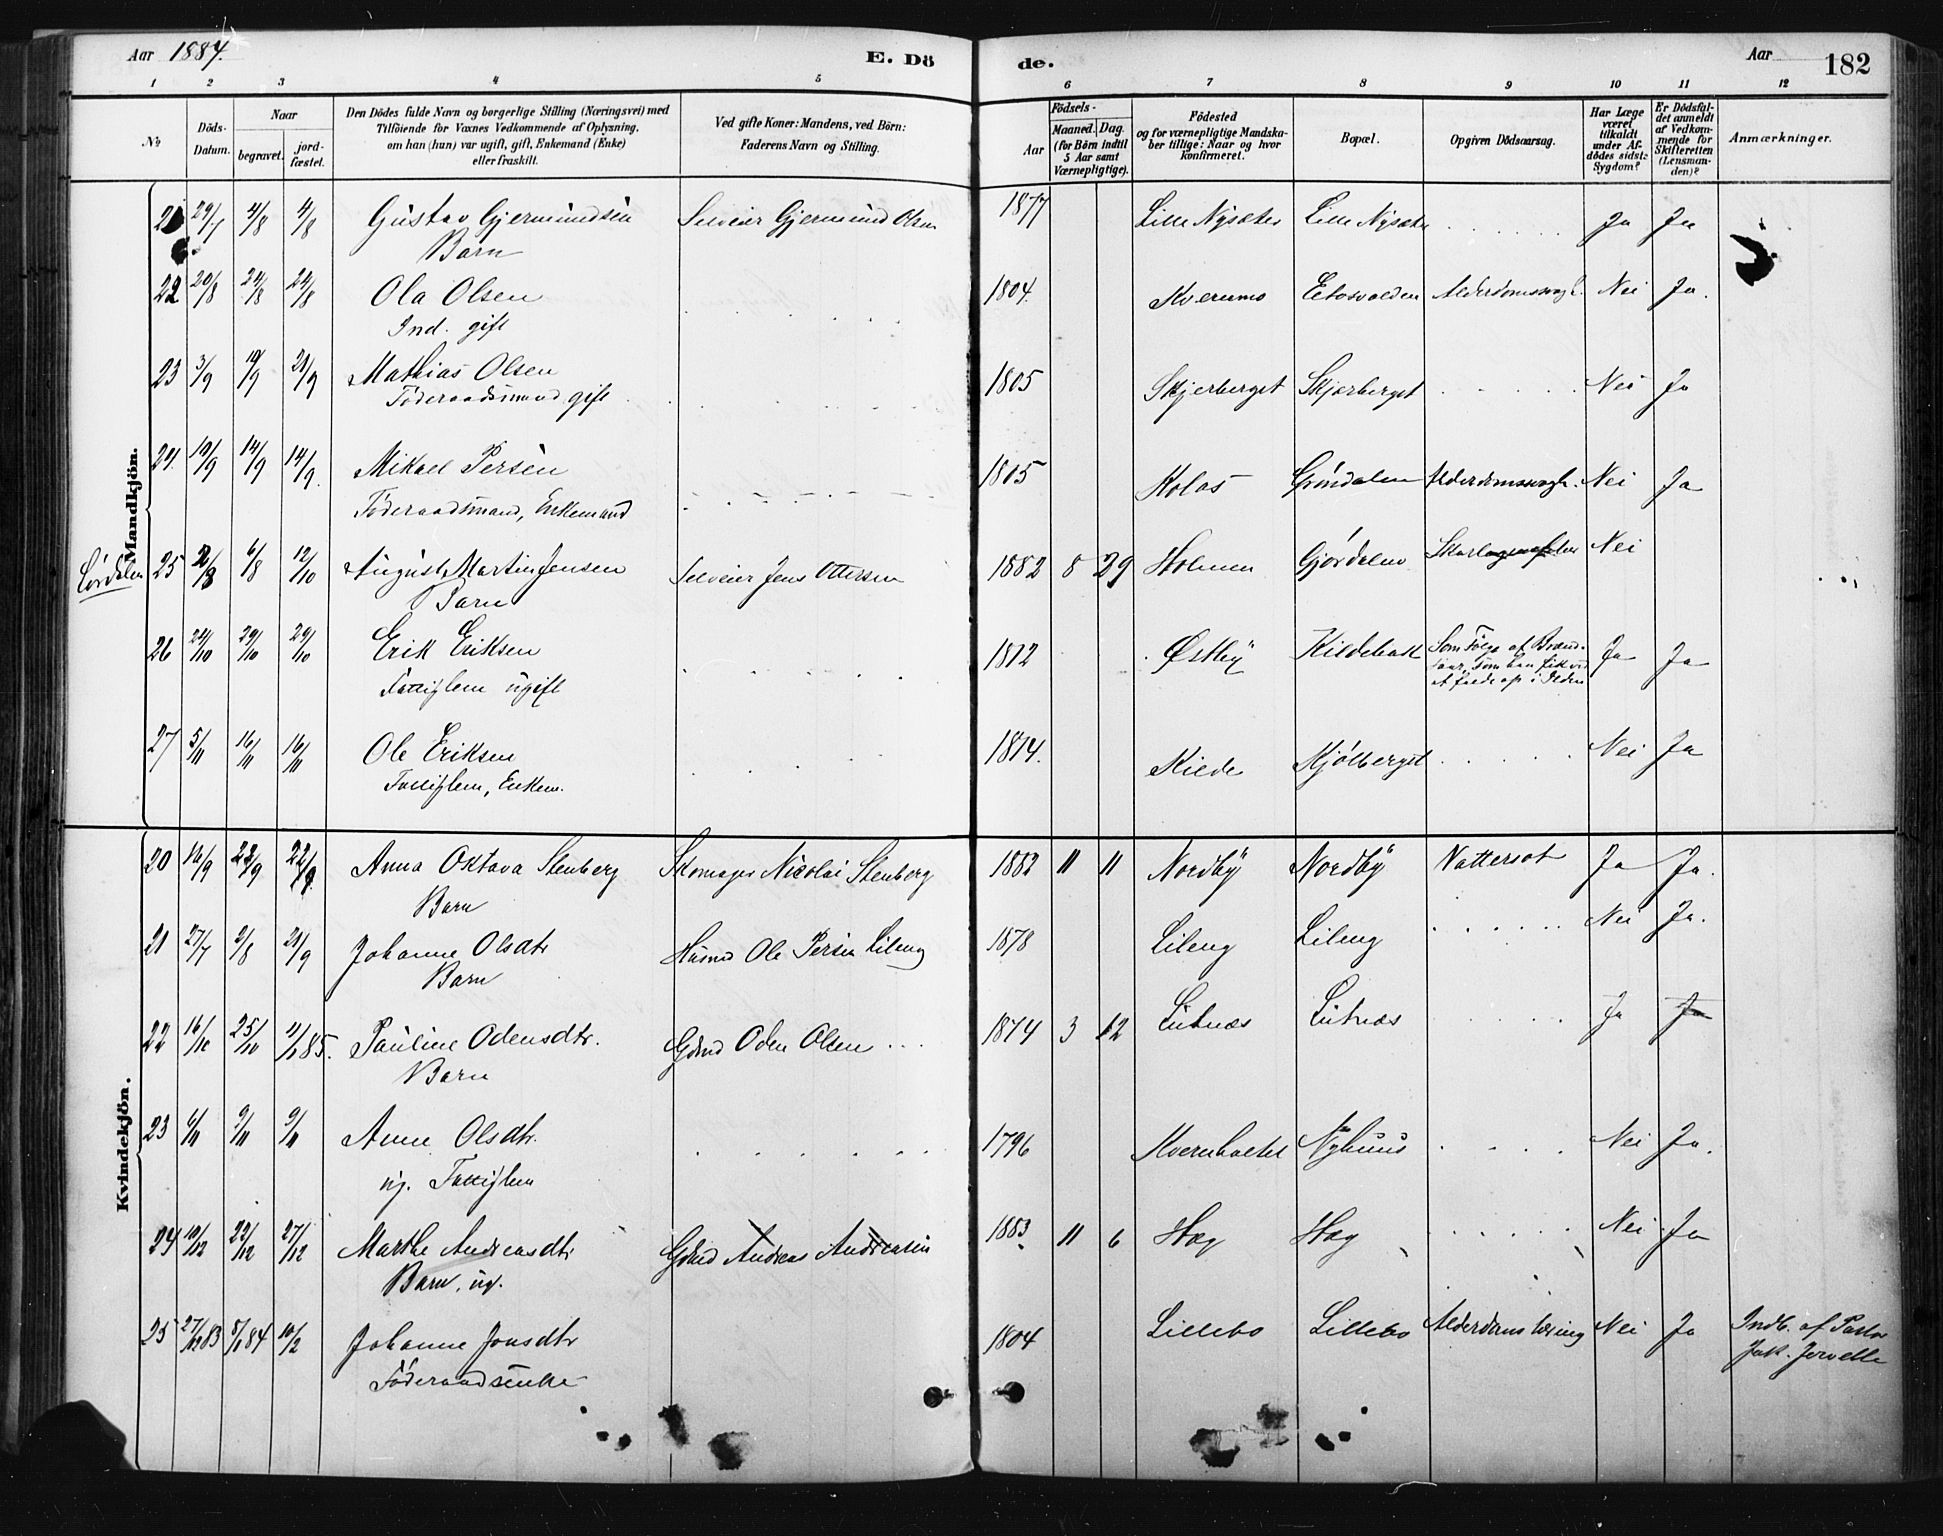 Aar 1884.
E. Dö
de.
Aar
182
1 2 3 4 5 6 7 8 9 10 11 12
No
Döds-Datum.
Naar
begravet.
jord-fæstet.
Den Dödes fulde Navn og borgerlige Stilling (Næringsvei) med
Tilföiende for Voxnes Vedkommende af Oplysning,
om han (hun) var ugift, gift, Enkemand (Enke)
eller fraskilt.
Ved gifte Koner: Mandens, ved Börn:
Faderens Navn og Stilling.
Födsels-
Aar
Maaned. Dag.
(for Börn indtil
5 Aar samt
Værnepligtige).
Födested
og for værnepligtige Mandska-
ber tillige: Naar og hvor
konfirmeret.
Bopæl.
Opgiven Dödsaarsag.
Har Læge
været
tilkaldt
under Af-
dödes sidste
Sygdom?
Er Dödsfal-
det anmeldt
af Vedkom-
mende for
Skifteretten
(Lensman-
den)?
Anmærkninger.
Mandkjön.
21 29/7 4/8 4/8 Gustav Gjermundsen Selveier Gjermund Olsen 1877 Lille Nysæter Lille Nysæter Ja Ja
Barn
22 20/8 24/8 24/8 Ola Olsen 1804 Kvernmo Nei Ja.
Ind. gift
23 3/9 19/9 21/9 Mathias Olsen 1805 Skjerberget Skjærberget Nei Ja
Föderaadsmand gift
24. 10/9 14/9 14/9. Mikael Persen 1805 Kolos Gröndalen Alderdomssvagh. Nei Ja
Föderaadsmand, Enkemand
25 2/8 6/8 12/10 August Martin Jensen Selveier Jens Ottersen 1882 8 29 Holmen Gjördalen Nei
Barn
26 24/10 29/10 29/10 Erik Eriksen 1812 Østby Kildebakk Som Følge af Brand-
saar, som han fik ved
at falde op i Ilden Ja Ja
Fattiglem ugift
27 5/11 16/11 16/11 Ole Eriksen 1814. Kilde Kjølberget Nei Ja
Fattiglem, Enkem.
Kvindekjön.
20 16/9 22/9 22/9 Anna Oktava Stenberg Skomager Nicolai Stenberg 1882 11 11 Nordby Nordby Vattersot Ja Ja.
Barn
21 27/7 2/8 21/9 Johanne Olsdtr Husmd Ole Persen Lileng 1878 Lileng Lileng Nei Ja.
Barn
22 16/10 25/10 85. Pauline Odensdtr. Gdmd Oden Olsen 1874 3 12 Lutnæs Lutnæs Ja Ja
Barn
23 6/11 9/11 9/11 Anne Olsdtr. 1796 Nyhuus Nei Ja.
ug. Fattiglem
24 10/12 22/12 27/12 Marthe Andreasdtr Gdmd Andreas Andreasen 1883 11 6 Hag Hag Nei Ja
Barn, ug.
25 27/12 83 5/1 84 10/2 Johanne Jonsdtr 1804 Lillebo Lillebo Nei Ja Indb. af Pastor
Jak. Jervell
Föderaadsenke